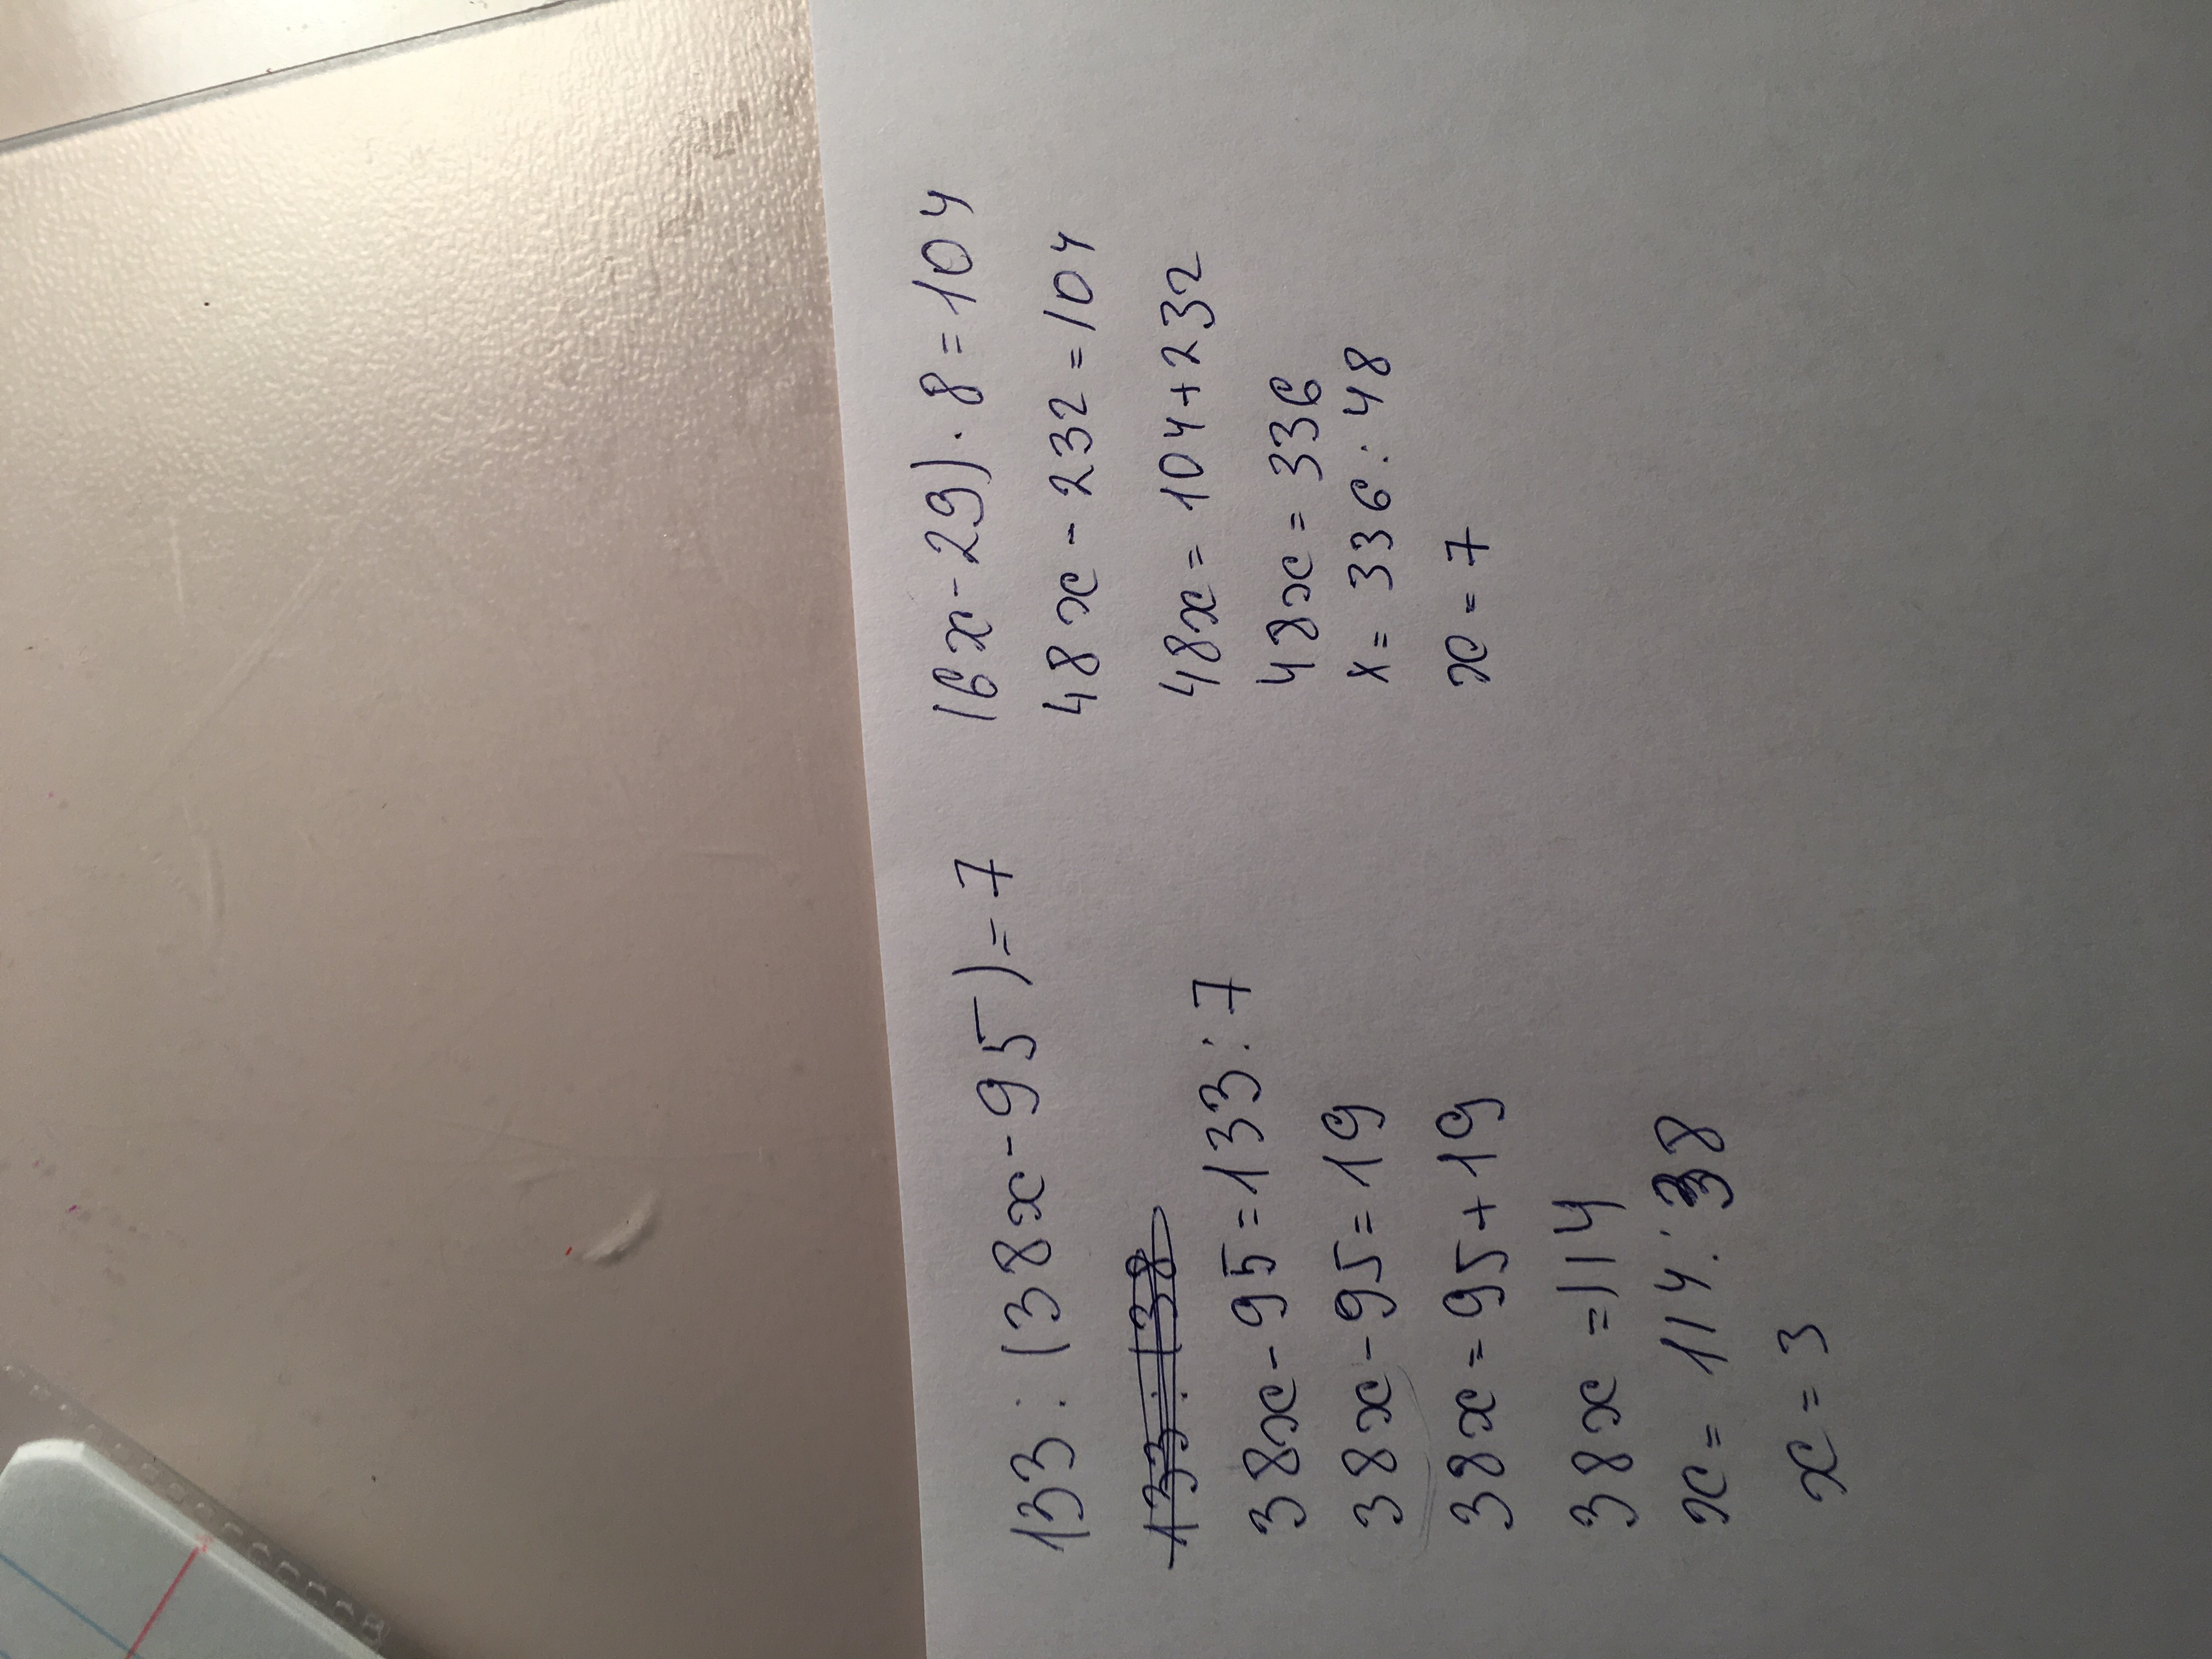 133 : (38x - 95) = 7
133 : (38
38x - 95 = 133 : 7
38x - 95 = 19
38x = 95 + 19
38x = 114
x = 114 : 38
x = 3
(6x - 29) · 8 = 104
48x - 232 = 104
48x = 104 + 232
48x = 336
x = 336 : 48
x = 7